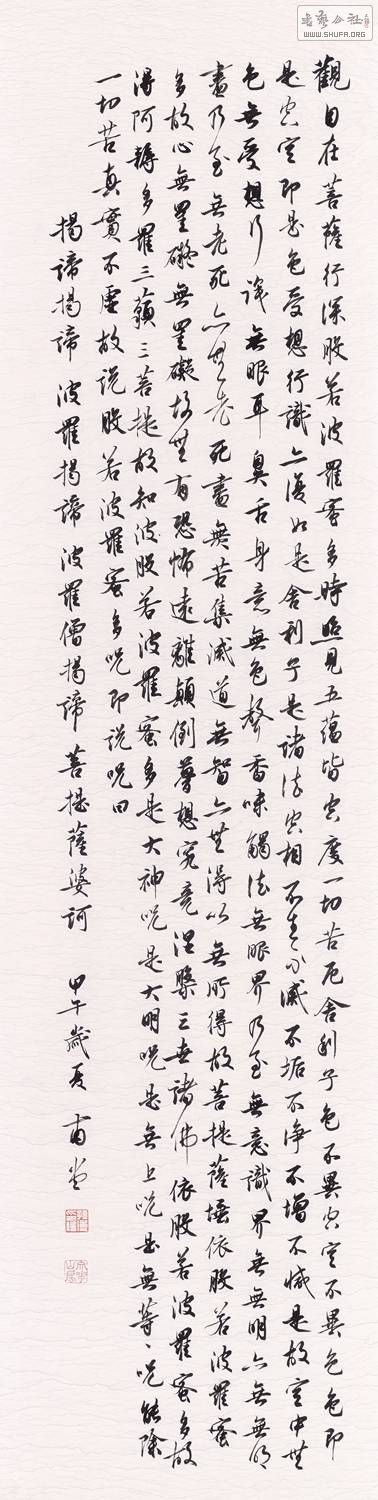 书艺公社
WWW.SHUFA.ORG
觀自在菩薩行深般若波羅蜜多時照見五蘊皆空度一切苦厄舍利子色不異空空不異色色即
是空空即是色受想行識亦復如是舍利子是諸法空相不生不滅不垢不淨不增不減是故空中無
色無受想行識無眼耳鼻舌身意無色聲香味觸法無眼界乃至無意識界無無明亦無無明
盡乃至無老死亦無老死盡無苦集滅道無智亦無得以無所得故菩提薩埵依般若波羅蜜
多故心無罣礙無罣礙故無有恐怖遠離顛倒夢想究竟涅槃三世諸佛依般若波羅蜜多故
得阿耨多羅三藐三菩提故知波般若波羅蜜多是大神呪是大明呪是無上呪是無等、呪能除
一切苦真實不虛故說般若波羅蜜多呪即說呪曰
揭諦揭諦 波羅揭諦 波羅僧揭諦 菩提薩婆訶 甲午歲夏